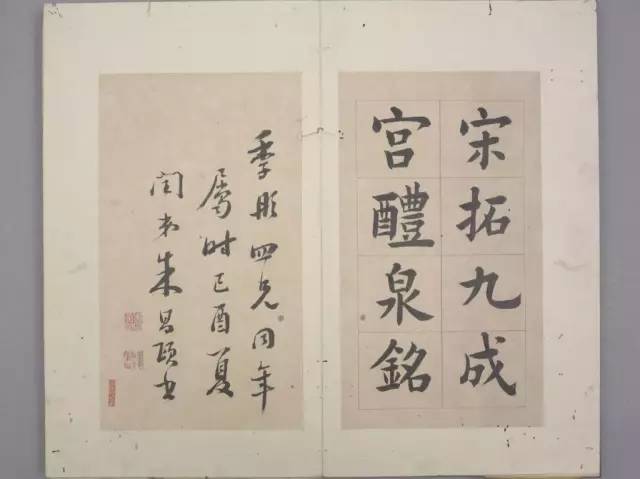 宋拓九成
宫醴泉銘
季彤四兄同年
屬時己酉夏
閏朱昌頤書